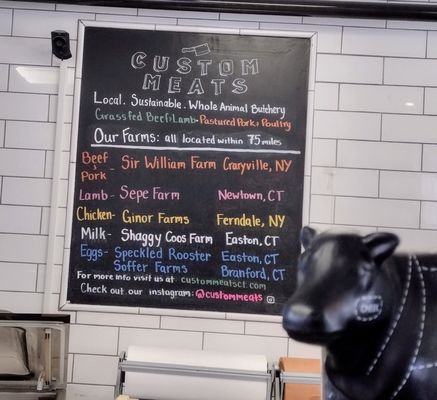 CUSTOM
MEATS
Local. Sustainable. Whole Animal Butchery
Grassfed Beef & Lamb - Pastured Pork & Poultry
Our Farms: all located within 75 miles
Beef & Pork - Sir William Farm Craryville, NY
Lamb - Sepe Farm Newtown, CT
Chicken - Ginor Farms Ferndale, NY
Milk - Shaggy Coos Farm Easton, CT
Eggs - Speckled Rooster Easton, CT
Soffer Farms Branford, CT
For more info visit us at custommeatsct.com
Check out our instagram: @custommeats